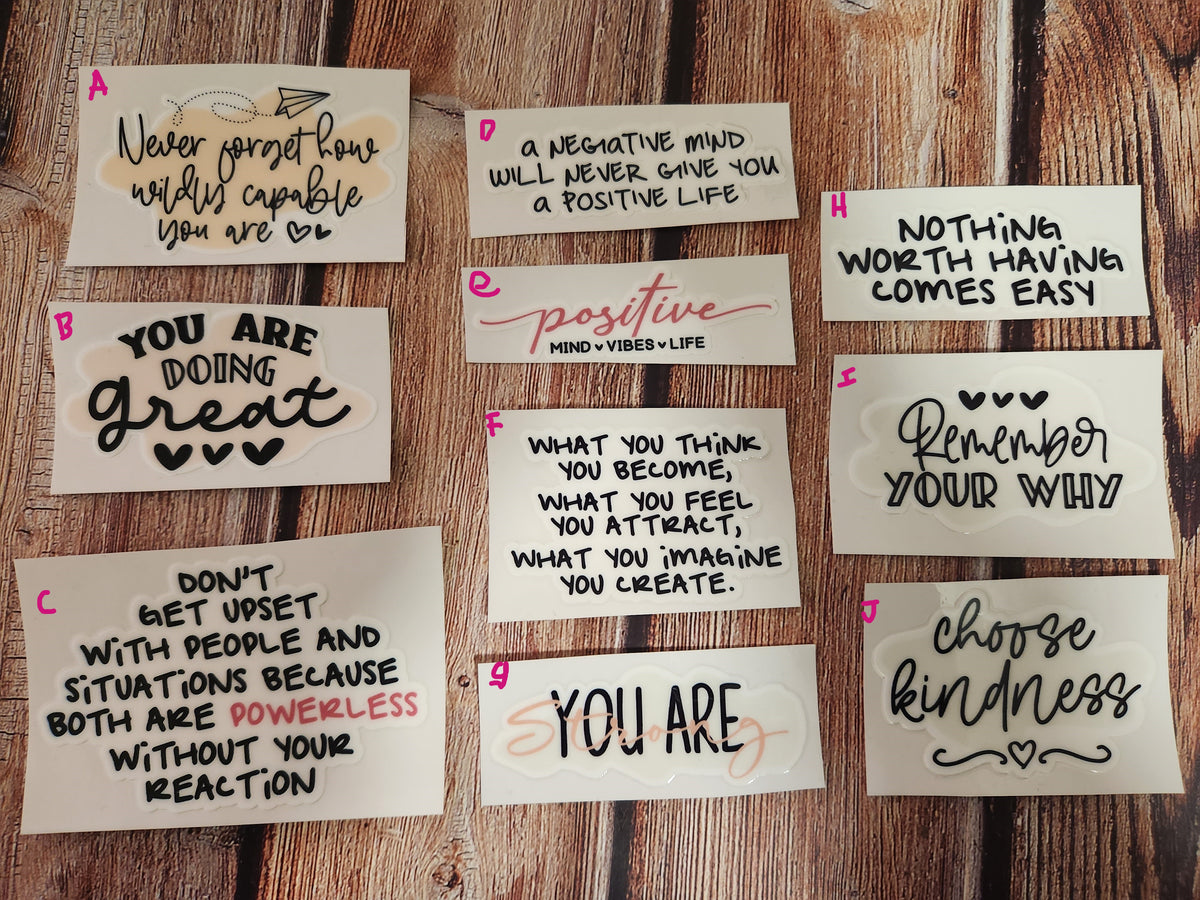 A
Never forget how
wildly capable
you are
B
YOU ARE
DOING
great
C
DON'T
GET UPSET
WITH PEOPLE AND
SITUATIONS BECAUSE
BOTH ARE POWERLESS
WITHOUT YOUR
REACTION
D
a NEGATIVE MIND
WILL NEVER GIVE YOU
a POSITIVE LIFE
e
positive
MIND VIBES LIFE
F
WHAT YOU THINK
YOU BECOME,
WHAT YOU FEEL
YOU ATTRACT,
WHAT YOU iMAGiNE
YOU CREATE.
g
YOU ARE
Strong
H
NOTHiNG
WORTH HAViNG
COMES EASY
I
Remember
YOUR WHY
J
choose
kindness